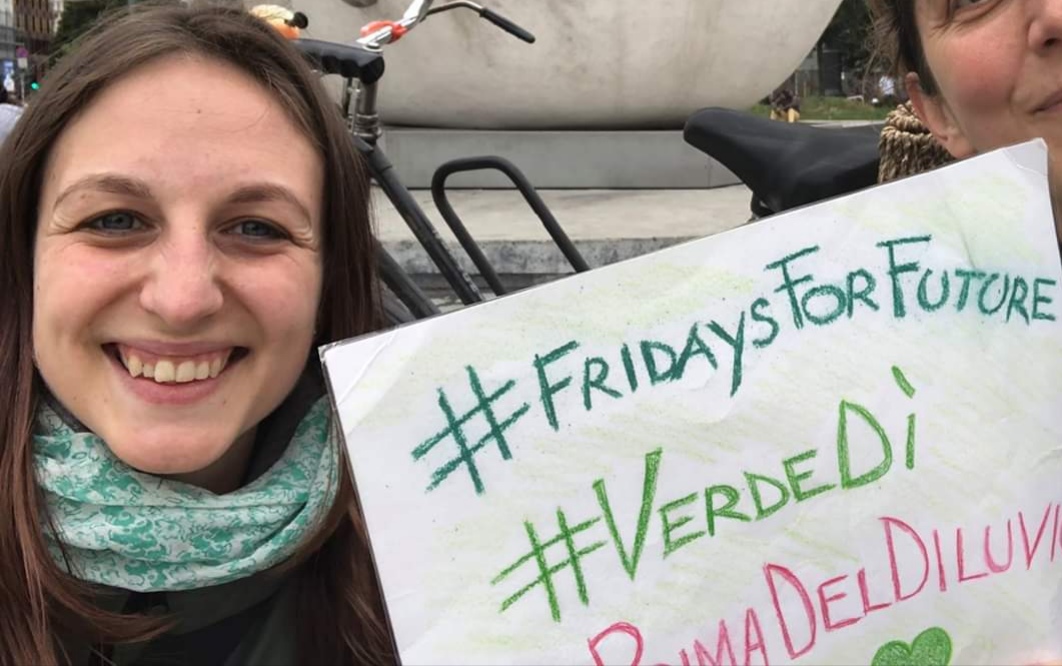 #FRIDAYSFORFUTURE
#VERDEDÌ
PRIMADELDILUVI